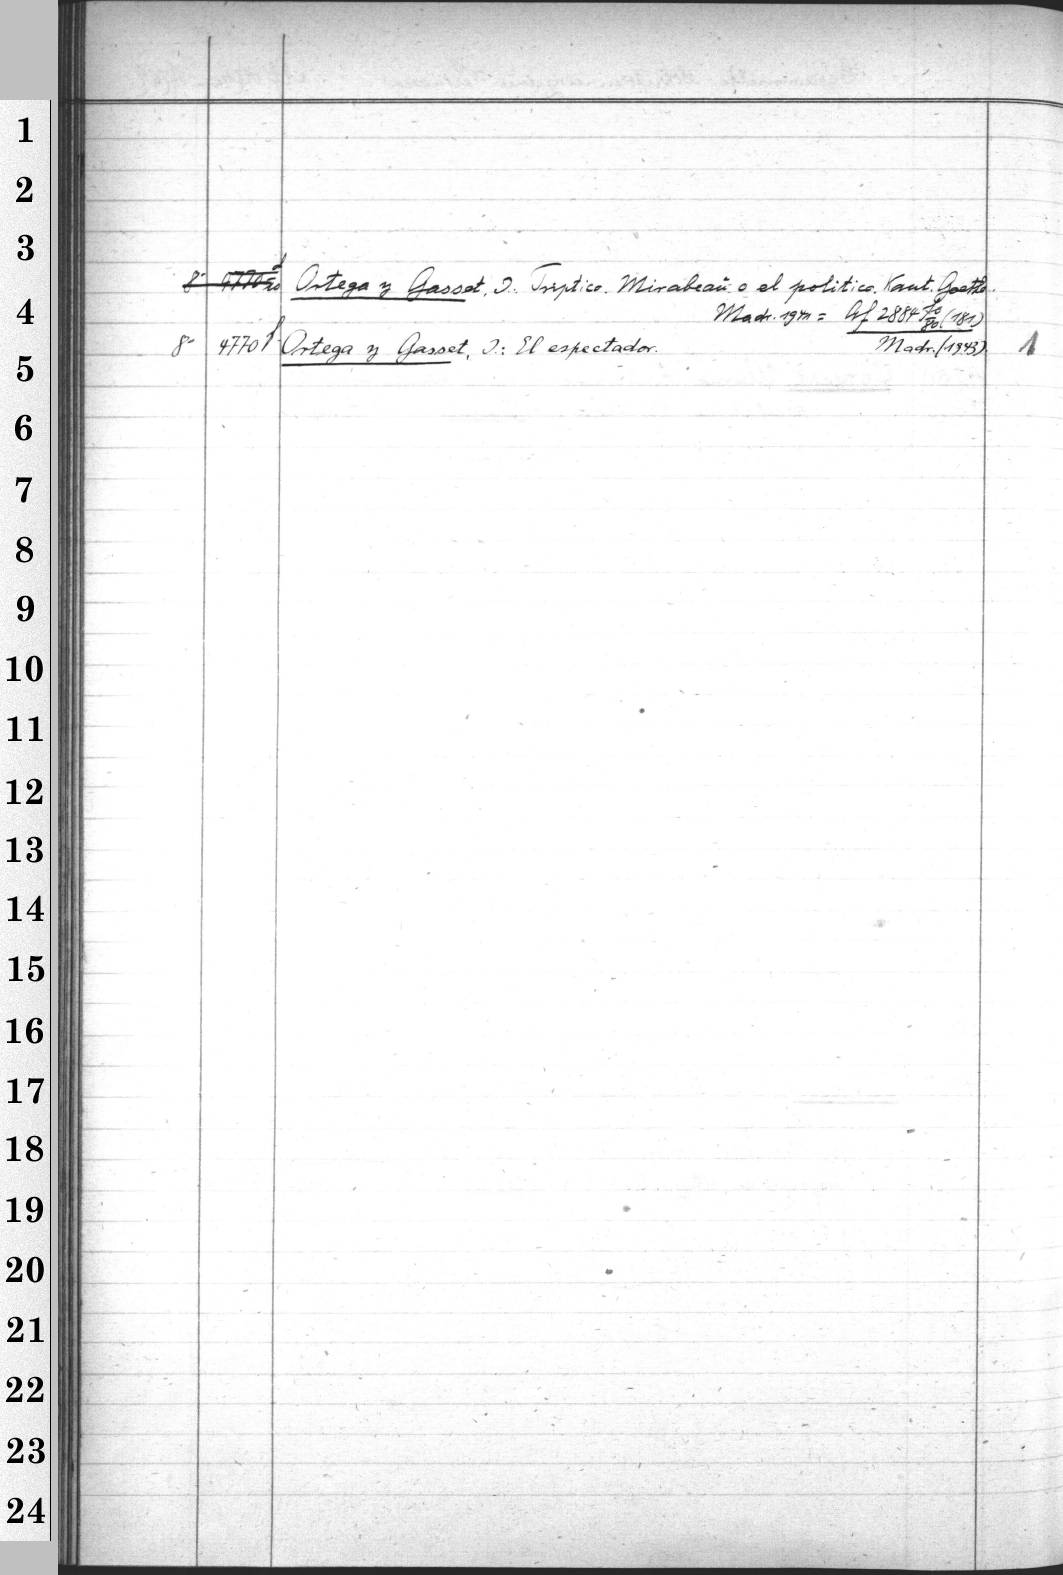 1
2
3
8° 4770 d Ortega y Gasset, J.: Tríptico. Mirabeau o el politico. Kant. Goethe.
4
Madr. 1941 = Af 2884 (181)
8° 4770 f Ortega y Gasset, J.: El espectador. Madr. (1943). 1
5
6
7
8
9
10
11
12
13
14
15
16
17
18
19
20
21
22
23
24